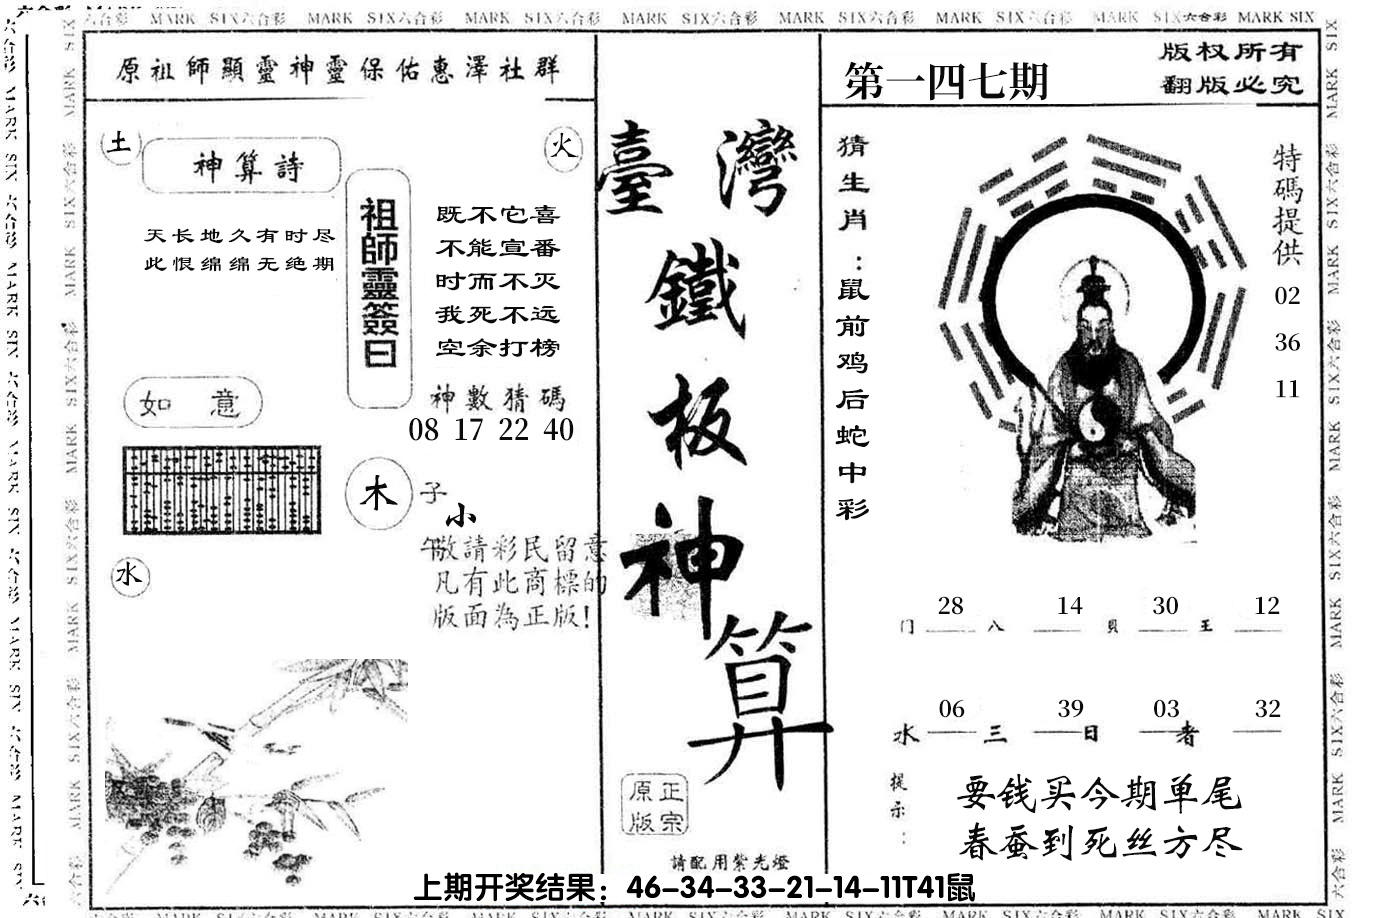 MARK SIX六合彩 MARK SIX六合彩 MARK SIX六合彩 MARK SIX六合彩 MARK SIX六合彩 MARK SIX六合彩 MARK SIX六合彩 MARK SIX
原祖師顯靈神靈保佑惠澤社群
土
神算詩
天长地久有时尽
此恨绵绵无绝期
火
祖師靈簽曰
既不它喜
不能宣番
时而不灭
我死不远
空余打榜
神數猜碼
08 17 22 40
如意
木
子
小
午
敬請彩民留意
凡有此商標的
版面為正版!
水
臺灣
鐵
板
神
算
正宗
原版
請配用紫光燈
第一四七期
版权所有
翻版必究
猜生肖:鼠前鸡后蛇中彩
特碼提供
02
36
11
28 14 30 12
门 八 貝 王
06 39 03 32
水 三 日 者
提示:
要钱买今期单尾
春蚕到死丝方尽
上期开奖结果：46-34-33-21-14-11T41鼠